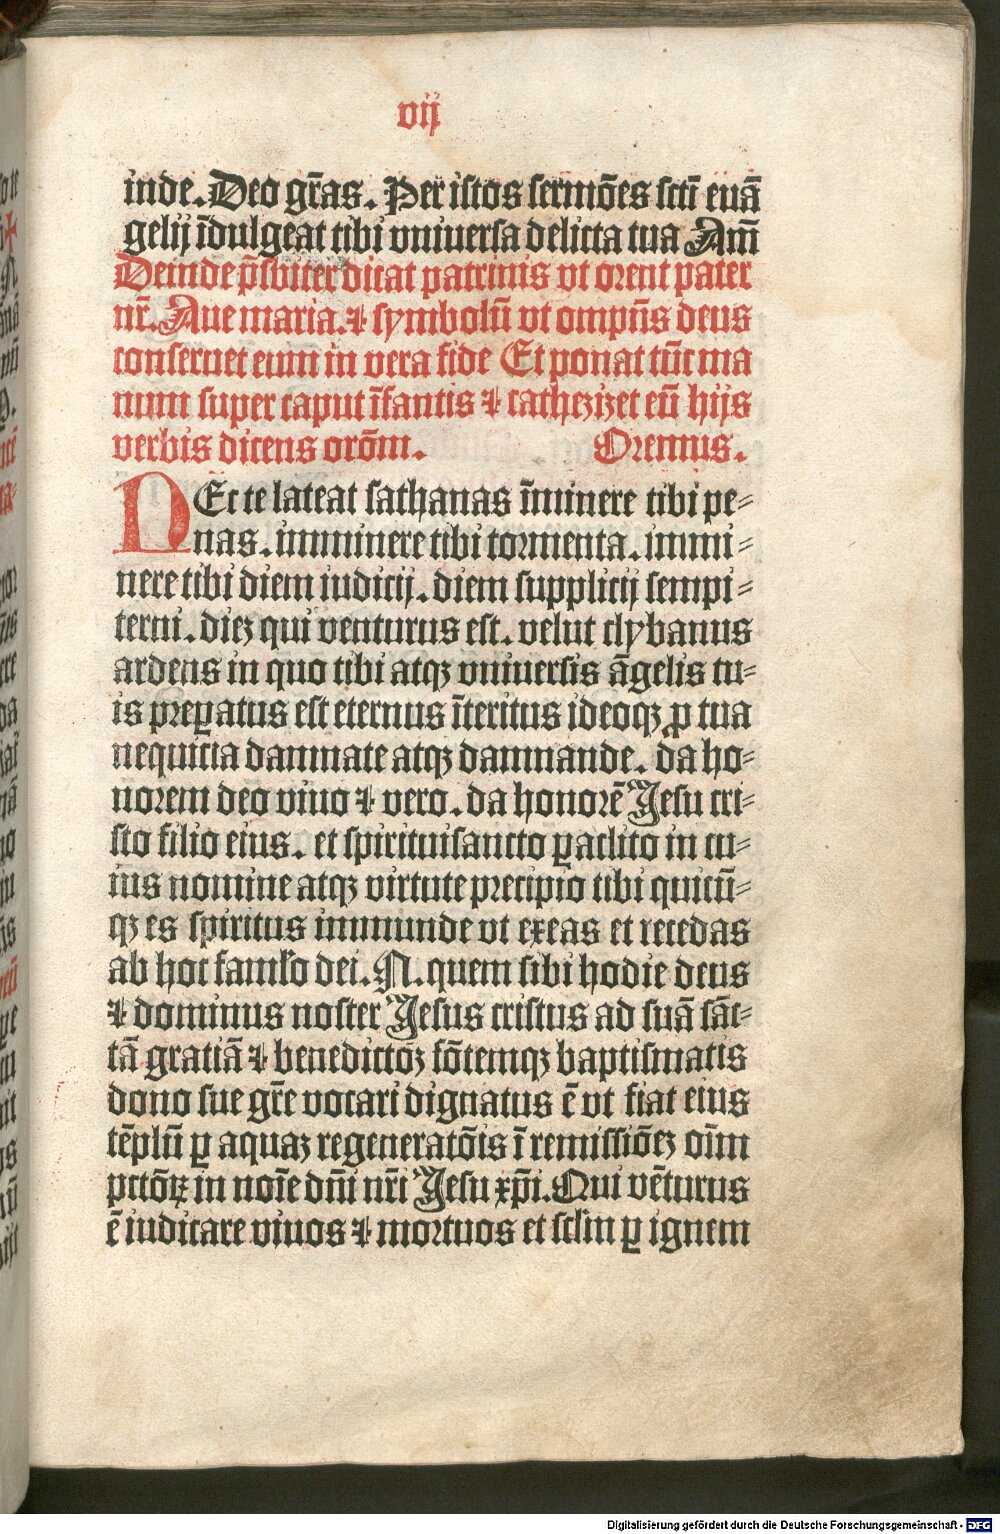 vij
inde. Deo gr̄as. Per istos sermōes sctī euā
gelij īdulgeat tibi vniuersa delicta tua Am̄
Deinde p̄sbiter dicat patrinis vt orent pater
nr̄. Aue maria. ⁊ symbolū vt omp̄ns deus
conseruet eum in vera fide Et ponat tūc ma
num super caput īfantis ⁊ cathezizet eū hijs
verbis dicens orōm. Oremus.
NEc te lateat sathanas īminere tibi pe⸗
nas. imminere tibi tormenta. immi⸗
nere tibi diem iudicij. diem supplicij sempi⸗
terni. dieꝫ qui venturus est. velut clybanus
ardens in quo tibi atqꝫ vniuersis āgelis tu⸗
is preꝑatus est eternus īteritus ideoqꝫ ꝓ tua
nequicia damnate atqꝫ damnande. da ho⸗
norem deo viuo ⁊ vero. da honorē Jesu cri⸗
sto filio eius. et spirituisancto ꝑaclito in cu⸗
ius nomine atqꝫ virtute precipio tibi quicū⸗
qꝫ es spiritus immunde vt exeas et recedas
ab hoc famło dei. N. quem sibi hodie deus
⁊ dominus noster Jesus cristus ad suā sāc⸗
tā gratiā ⁊ benedictōꝫ fōtemqꝫ baptismatis
dono sue gr̄e vocari dignatus ē vt fiat eius
tēplū ꝑ aquaꝫ regeneratōis ī remissiōeꝫ oīm
pctōꝝ in noīe dn̄i nr̄i Jesu xp̄i. Qui vēturus
ē iudicare viuos ⁊ mortuos et sclm̄ ꝑ ignem
Digitalisierung gefördert durch die Deutsche Forschungsgemeinschaft - DFG